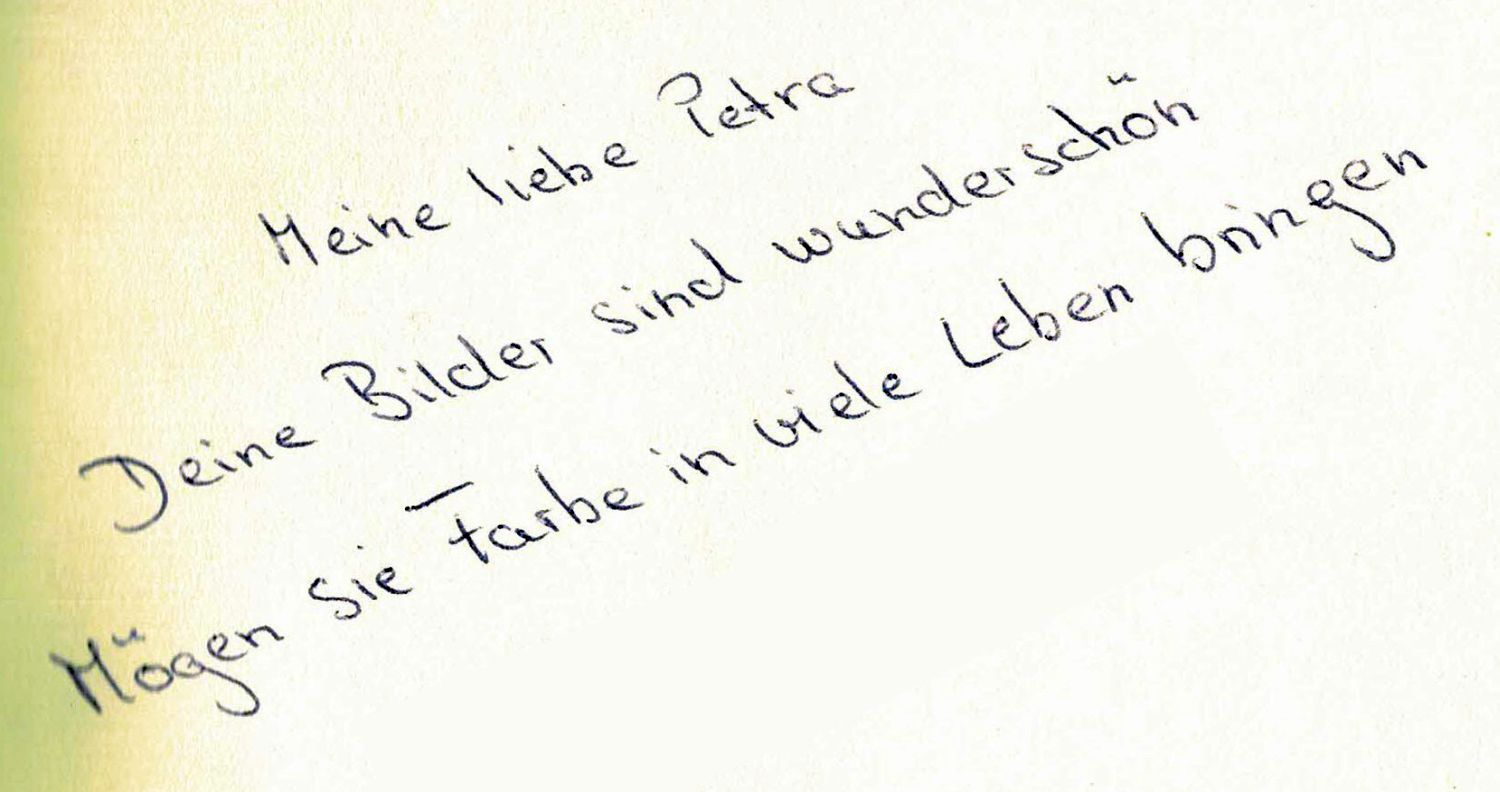 Meine liebe Petra
Deine Bilder sind wunderschön
Mögen sie Farbe in viele Leben bringen